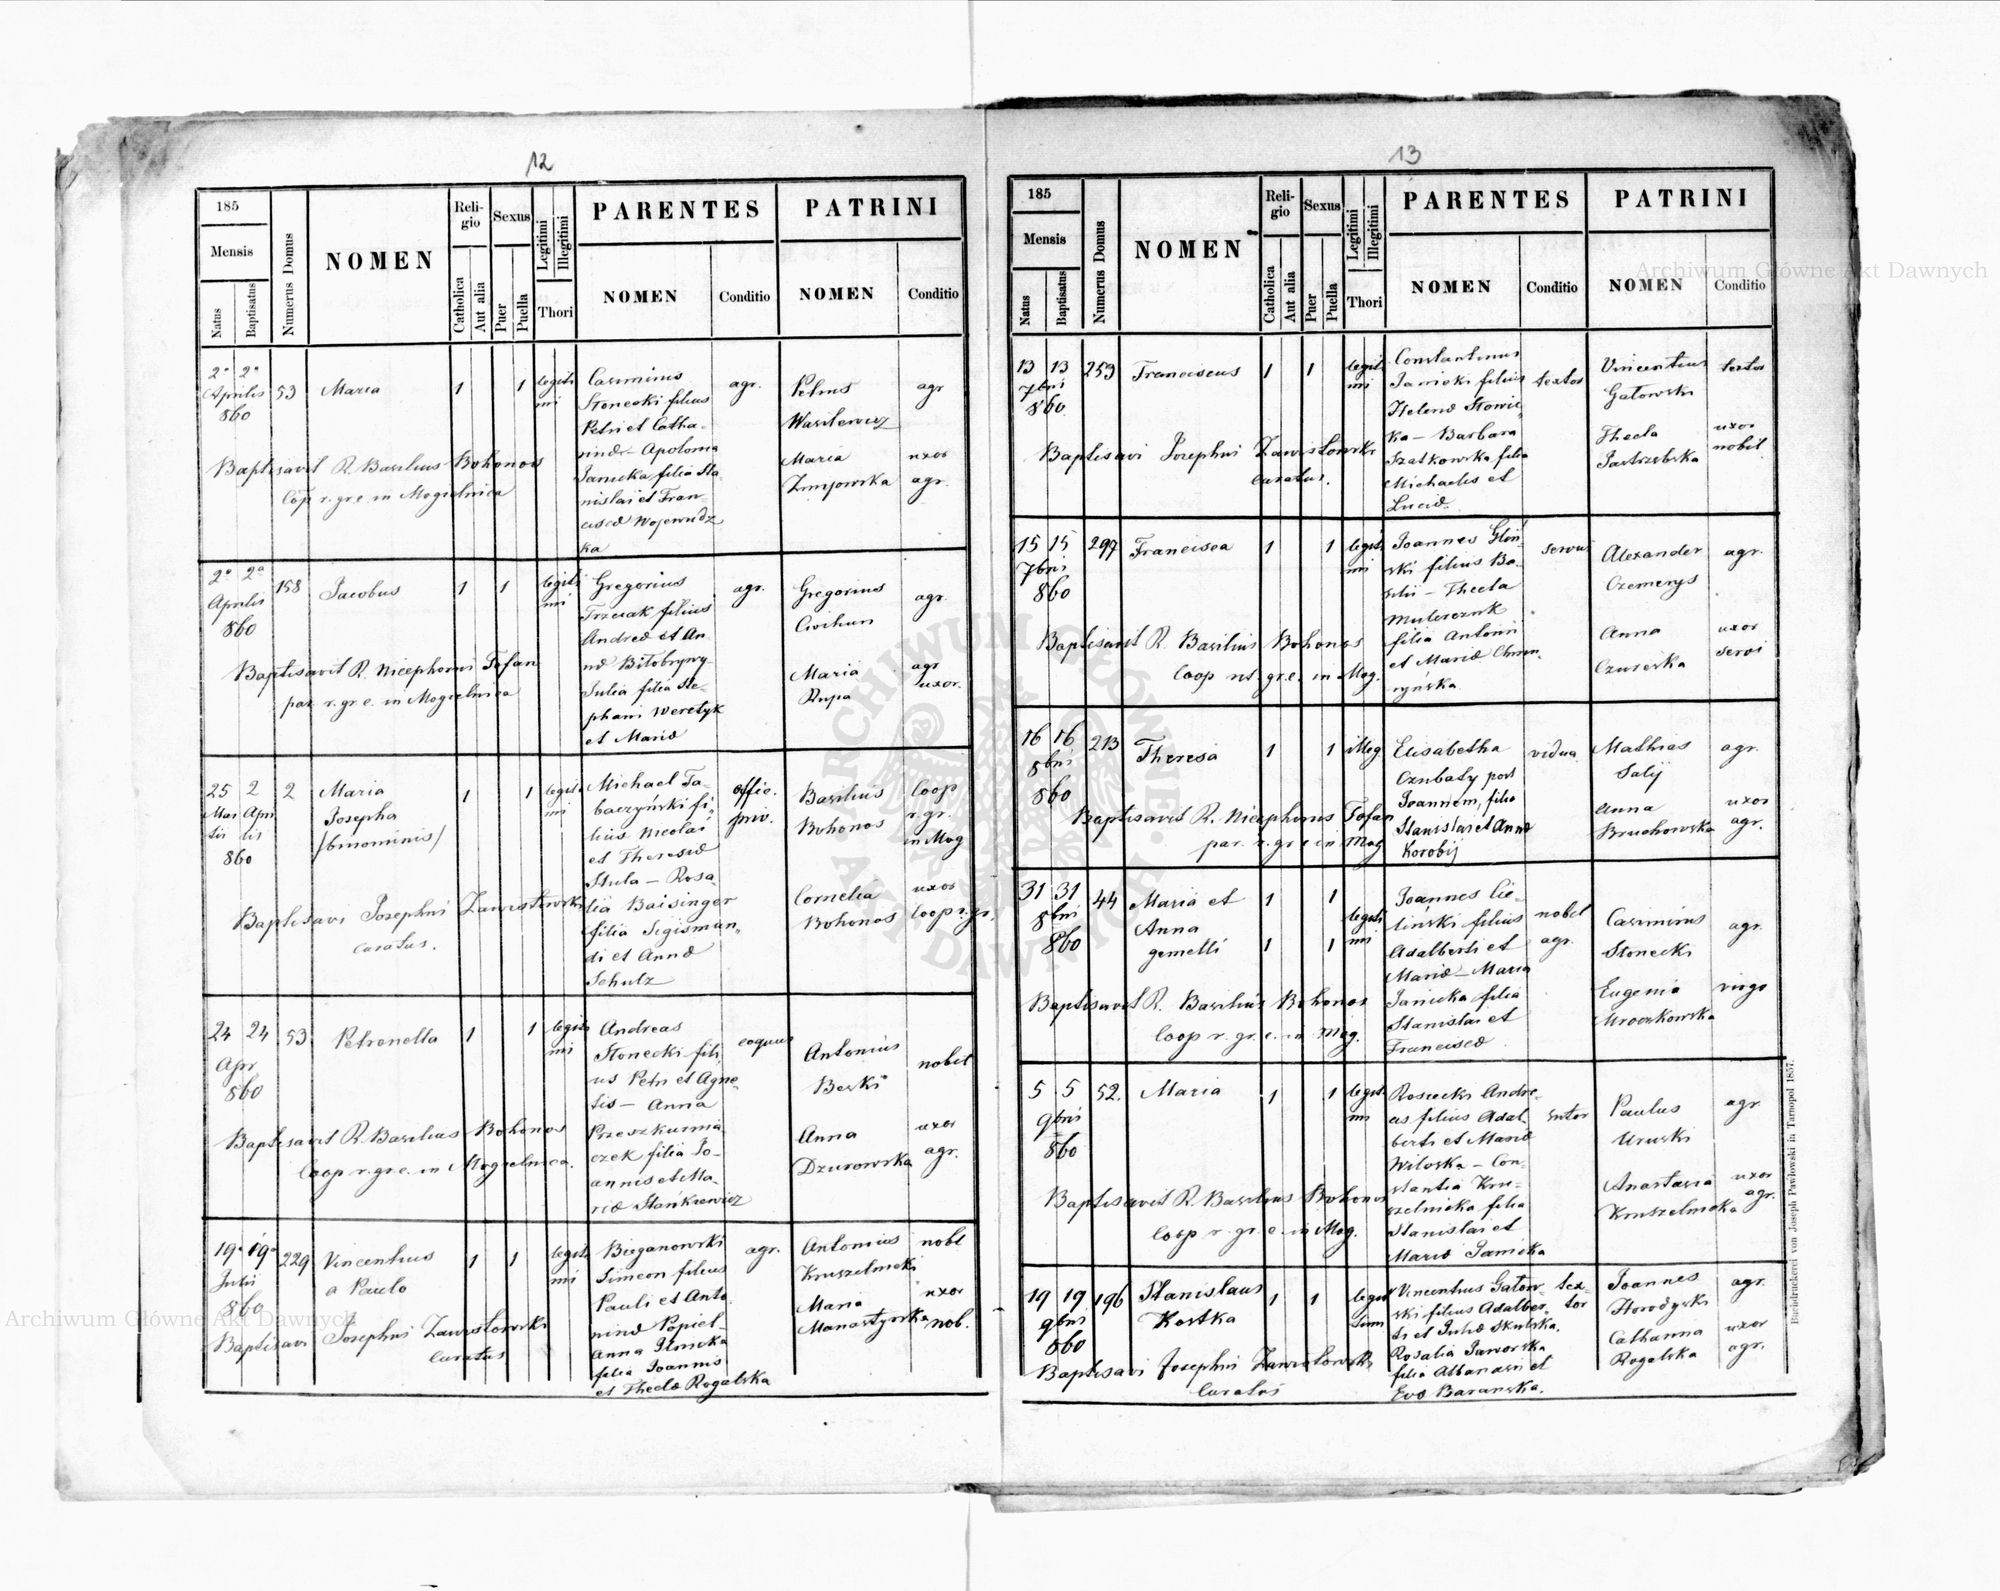 12
185
Mensis
Natus
Baptisatus
Numerus Domus
NOMEN
Religio
Catholica
Aut alia
Sexus
Puer
Puella
Legitimi
Illegitimi
Thori
PARENTES
NOMEN
Conditio
PATRINI
NOMEN
Conditio
2a 2a
Aprilis
860
53
Maria
1
1
legiti
mi
Casimirus
Stonecki filius
Petri et Catha-
rina - Apolonia
Janicka filia Sta
nislai et Fran-
cisca Wojewudz
ka
agr.
Petrus
Wasilewicz
agr
Maria
Zmyowska
uxor
agr.
Baptisavit R. Basilius Bohonos
Cop r. gr. e. in Mogielnica
2a 2a
Aprilis
860
158
Jacobus
1
1
legiti
mi
Gregorius
Trzeciak filius
Andrea et An
na Bilobrywy-
Julia filia Ste-
phani Weretyk
et Maria
agr.
Gregorius
agr.
Maria
Rupa
agr
uxor.
Baptisavit R. Nicephorus Tofan
par. r. gr. e. in Mogielnica
25 2
Mar Apri
tii lis
860
2
Maria
Josepha
/binominis/
1
1
legiti
mi
Michael Ta-
baczyński fi-
lius Nicolai
et Theresia
Stula - Rosa-
lia Baisinger
filia Sigismun-
di et Anna
Schulz
offic.
priv.
Basilius
Bohonos
Coop
r. gr.
in Mog
Cornelia
Bohonos
uxor
Coop r. gr.
Baptisavi Josephus Zawistowski
curatus.
24 24
Apr
860
53
Petronella
1
1
legiti
mi
Andreas
Stonecki fili
us Petri et Agne-
tis - Anna
Przeszkurnia
czek filia Jo-
annis et Ma-
ria Stankiewicz
coquus
Antonius
Berki
nobil
Anna
Dzurowska
uxor
agr.
Baptisavit R. Basilius Bohonos
Coop r. gr. e. in Mogielnica.
19a 19a
Julii
860
229
Vincentius
a Paulo
1
1
legiti
mi
Bieganowski
Simeon filius
Pauli et Anto
nina Popiel-
Anna Ilnicka
filia Joannis
et Thecla Rogalska
agr.
Antonius
Kruszelnicki
nobl
Maria
Manastyrska
uxor
nob.
Baptisavi Josephus Zawistowski
Curatus
13
185
Mensis
Natus
Baptisatus
Numerus Domus
NOMEN
Religio
Catholica
Aut alia
Sexus
Puer
Puella
Legitimi
Illegitimi
Thori
PARENTES
NOMEN
Conditio
PATRINI
NOMEN
Conditio
13 13
7bris
860
253
Franciscus
1
1
legiti
mi
Constantinus
Janicki filius
Helena Stowic
ka - Barbara
Szatkowska filia
Michaelis et
Lucia.
textor
Vincentius
Gatowski
textor
Thecla
Jastrzebska
uxor
nobil
Baptisavi Josephus Zawistowski
Curatus.
15 15
7bris
860
297
Francisca
1
1
legiti
mi
Joannes Gliń
ski filius Ba-
silii - Thecla
filia Antonii
et Maria Chom-
ryńska
servus
Alexander
Czemerys
agr.
Anna
Czurerka
uxor
servi
Baptisavit R. Basilius Bohonos
Coop rit. gr. e. in Mog.
16 16
8bris
860
213
Theresia
1
1
illeg.
Elisabetha
Czubaty post
Joannem, filia
Stanislai et Anna
Korobij
vidua
Mathias
Salij
agr.
Anna
Bruchowska
uxor
agr.
Baptisavit R. Nicephorus Tofan
par. r. gr. e in Mog
31 31
8bris
860
44
Maria et
Anna
gemelli
1
1
1
1
legiti
mi
Joannes Cie-
liński filius
Adalberti et
Maria - Maria
Janicka filia
Stanislai et
Francisca
nobil
agr.
Casimirus
Stonecki
agr.
Eugenia
Mroczkowska
virgo
Baptisavit R. Basilius Bohonos
Coop r. gr. e. in Mog.
5 5
9bris
860
52.
Maria
1
1
legiti
mi
Rosiecki Andre-
as filius Adal
berti et Maria
Wilovka - Con-
stantia Kru-
szelnicka filia
Stanislai et
Maria Janicka
sutor
Paulus
Uruski
agr
Anastasia
Kruszelnicka
uxor
agr.
Baptisavit R. Basilius Bohonos
Coop r. gr. e. in Mog.
19 19
9bris
860
196
Stanislaus
Kostka
1
1
legiti
Vincentius Gatow-
ski filius Adalber-
ti et Julia Skulska.
Rosalia Jaworska
filia Athanasii et
Eva Baranska.
tex-
tor
Joannes
Horodyski
agr.
Catharina
Rogalska
uxor
agr.
Baptisavi Josephus Zawistowski
Curatus
Buchdruckerei von Joseph Pawlowski in Tarnopol 1857.
Archiwum Główne Akt Dawnych
Archiwum Główne Akt Dawnych
ARCHIWUM GŁÓWNE AKT DAWNYCH